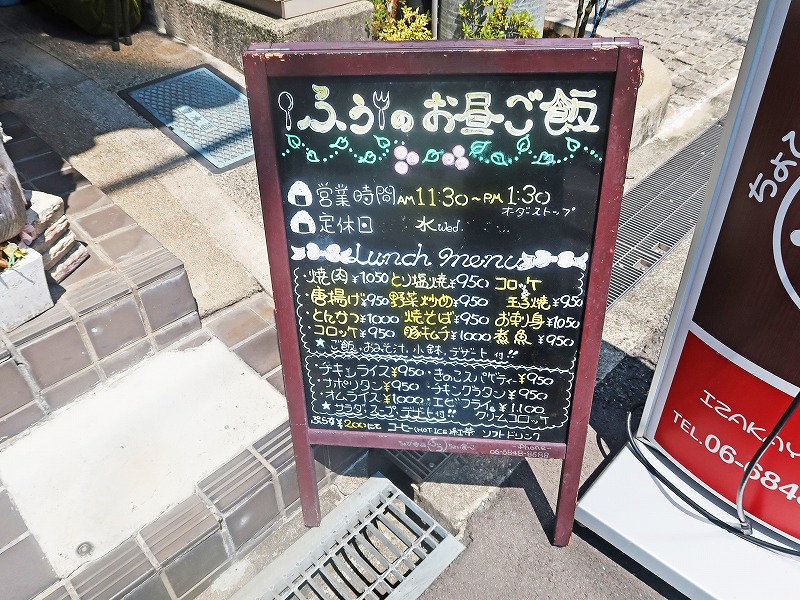 ふぅのお昼ご飯
営業時間 AM11:30~PM1:30
オーダーストップ
定休日 水wed.
Lunch menu
・焼肉¥1050 とり塩焼¥950 コロッケ
・唐揚げ¥950 野菜炒め¥950 玉子焼¥950
・とんかつ¥1000 焼そば¥950 お刺身¥1050
・コロッケ¥950 豚キムチ¥1000 煮魚¥950
★ご飯.おみそ汁.小鉢.デザート付!!
チキンライス¥950 ・きのこスパゲティー¥950
・ナポリタン¥950 ・チキングラタン¥950
・オムライス¥1000 ・エビフライ¥1,100
★サラダ.スープ.デザート付!! クリームコロッケ
ぷらす¥200にて コーヒー(HOT.ICE) 紅茶 ソフトドリンク
phone-
06-6848-8688
ちょい
IZAKAY
TEL.06-6848